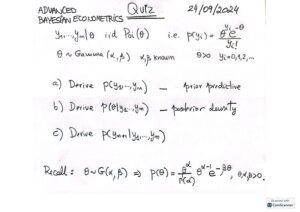 ADVANCED BAYESIAN ECONOMETRICS Quiz 24/09/2024
y₁,...,yₙ|θ iid Poi(θ) i.e. p(yᵢ) = θ^yᵢ e^-θ / yᵢ!
θ ~ Gamma(α,β) α,β known θ>0 yᵢ=0,1,2,...
a) Derive p(y₁,...,yₙ) — prior predictive
b) Derive p(θ|y₁,...,yₙ) — posterior density
c) Derive p(yₙ₊₁|y₁,...,yₙ)
Recall: θ~G(α,β) ⇒ p(θ) = β^α / Γ(α) θ^α-1 e^-βθ, θ,α,β>0.
CamScanner